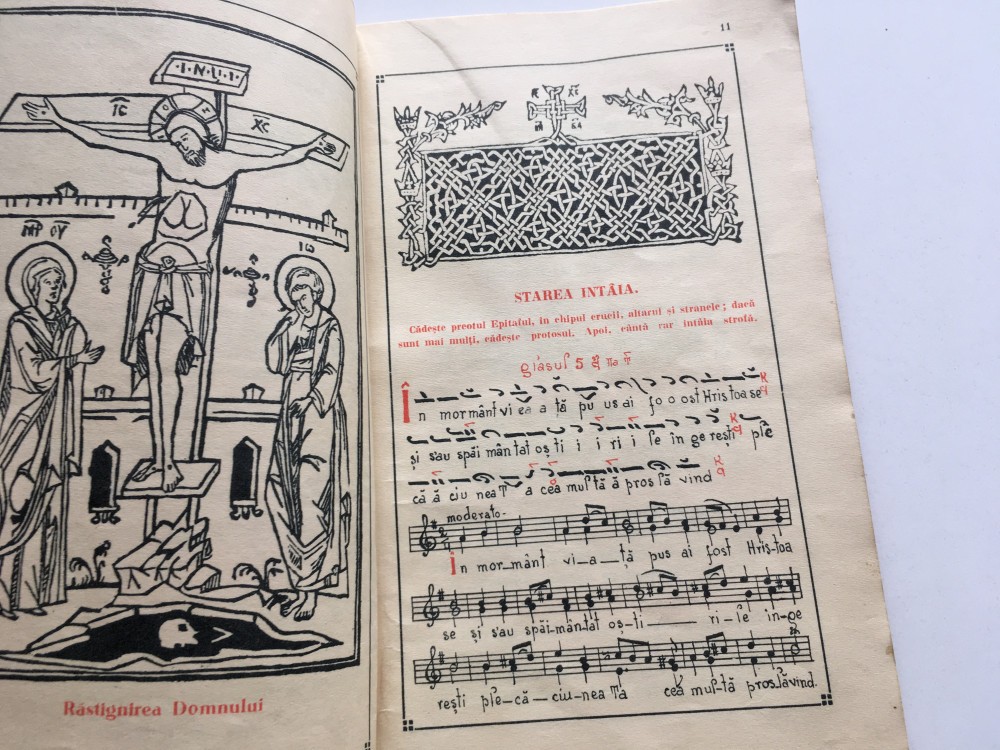 I.N.U.I
IC
XC
IѠ
Răstignirea Domnului
11
STAREA INTÂIA.
Cădește preotul Epitaful, în chipul crucii, altarul și stranele; dacă
sunt mai mulți, cădește protosul. Apoi, cântă rar intâia strofă.
glasul 5
În mormânt vi ea a ță pu us ai fo o ost Hris toa se
și s'au spăi mân tat oș ti i i ri i le în ge rești ple
că ă ciu nea T a cea mul tă ă proslă vind
moderato-
În mor_mânt vi_a_ță pus ai fost Hris_toa
se și s'au spăi_mân_tat oș_ti___ ri_le în_ge
rești ple_că_ciu_nea Ta cea mul_tă proslăvind.